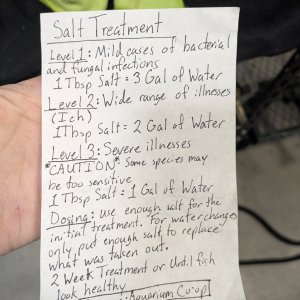 Salt Treatment
Level 1: Mild cases of bacterial
and fungal infections
1 Tbsp Salt = 3 Gal of Water
Level 2: Wide range of illnesses
(Ich)
1 Tbsp Salt = 2 Gal of Water
Level 3: Severe illnesses
*CAUTION* Some species may
be too sensitive
1 Tbsp Salt = 1 Gal of Water
Dosing: use enough salt for the
initial treatment. For water changes
only put enough salt to replace
what was taken out.
2 Week Treatment or Until fish
look healthy
Aquarium Co-op